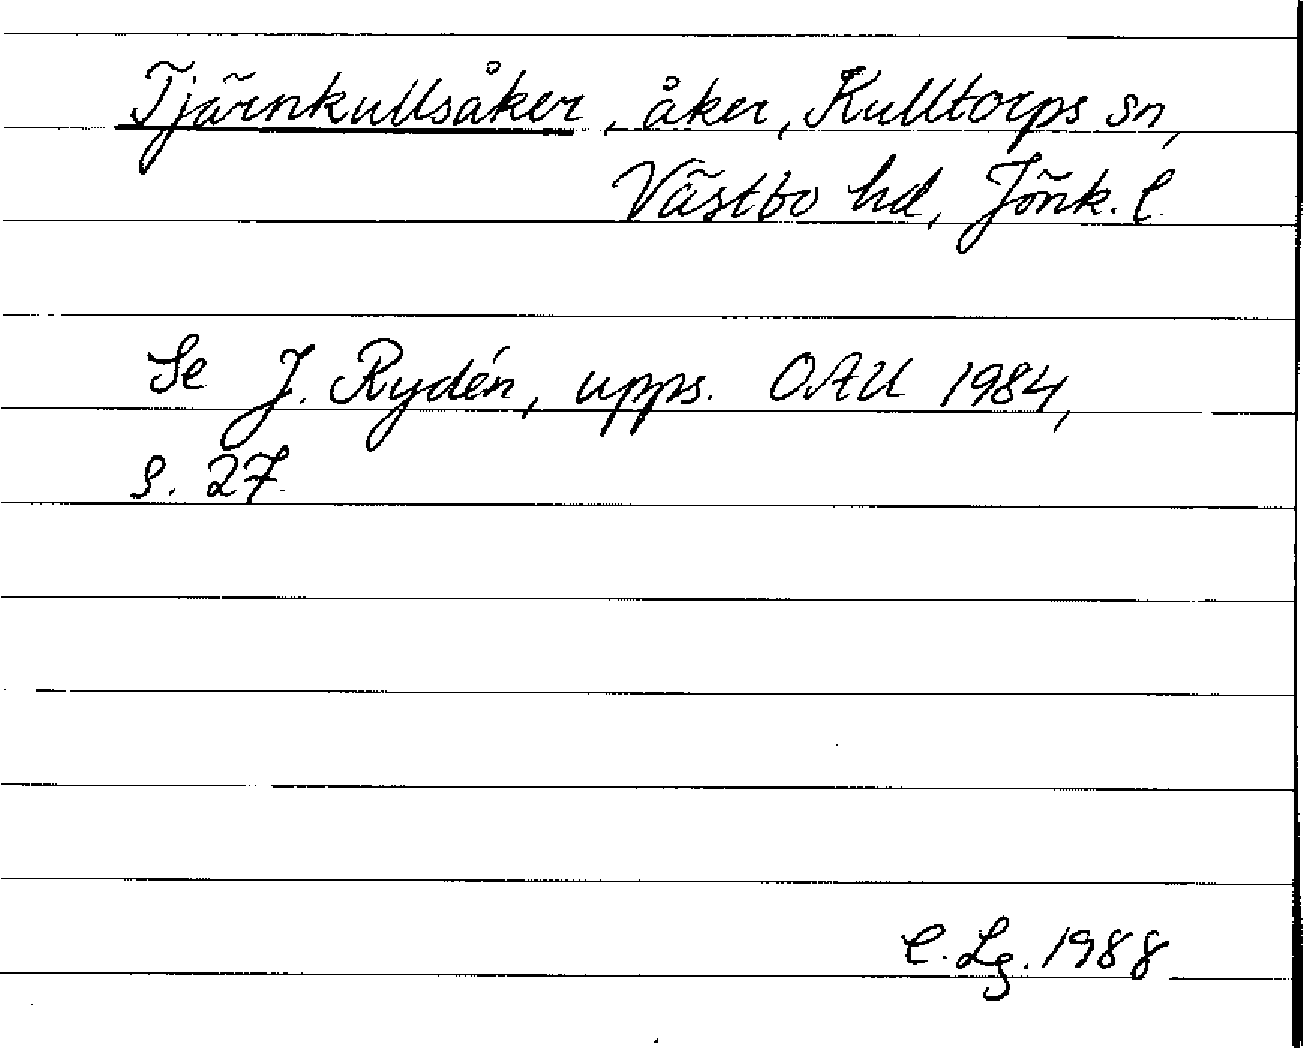 Tjärnkullsåker, åker, Kulltorps sn,
Västbo hd, Jönk. l.
Se J. Rydén, upps. OAU 1984,
s. 27.
C. Lg. 1988